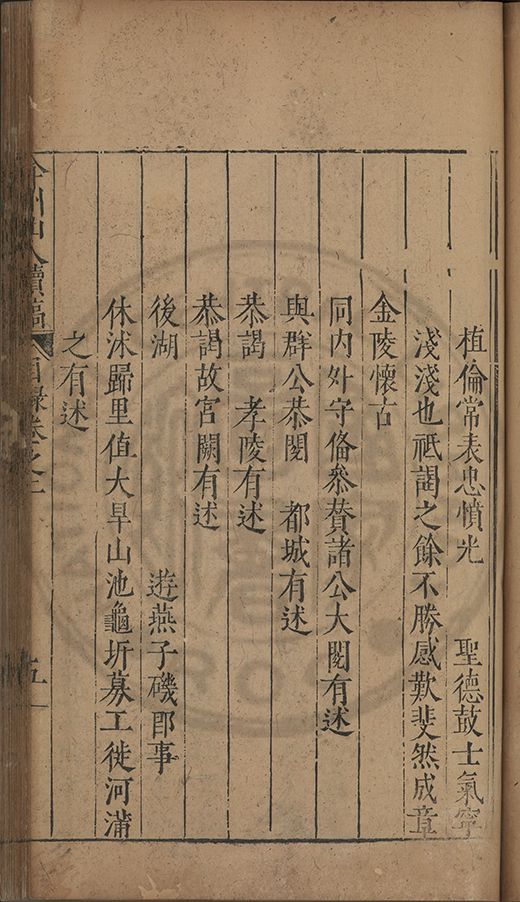 植倫常表忠憤光　聖德鼓士氣寧
淺淺也祗謁之餘不勝感歎斐然成章
金陵懷古
同內外守備叅贊諸公大閱有述
與群公恭閱　都城有述
恭謁　孝陵有述
恭謁故宮闕有述
後湖　遊燕子磯即事
休沭歸里值大旱山池龜坼募工徙河灌
之有述
續稿　目錄卷之二
五